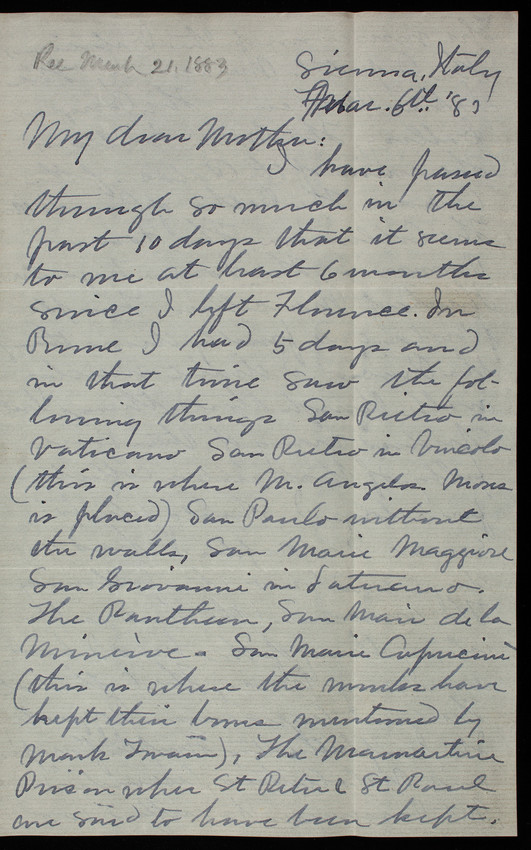 Rec March 21. 1883
Sienna, Italy
Mar. 6th. '83
My dear Mother:
I have passed
through so much in the
past 10 days that it seems
to me at least 6 months
since I left Florence. In
Rome I had 5 days and
in that time saw the fol-
lowing things San Pietro in
Vaticano San Pietro in Vincolo
(this is where M. Angelos Moses
is placed) San Paulo without
the walls, San Marie Maggiore
San Giovanni in Laterano.
The Pantheon, San Marie de la
Minerve. San Marie Capucini
(this is where the monks have
kept their bones mentioned by
Mark Twain), The Mamartine
Prison where St Peter & St Paul
are said to have been kept.